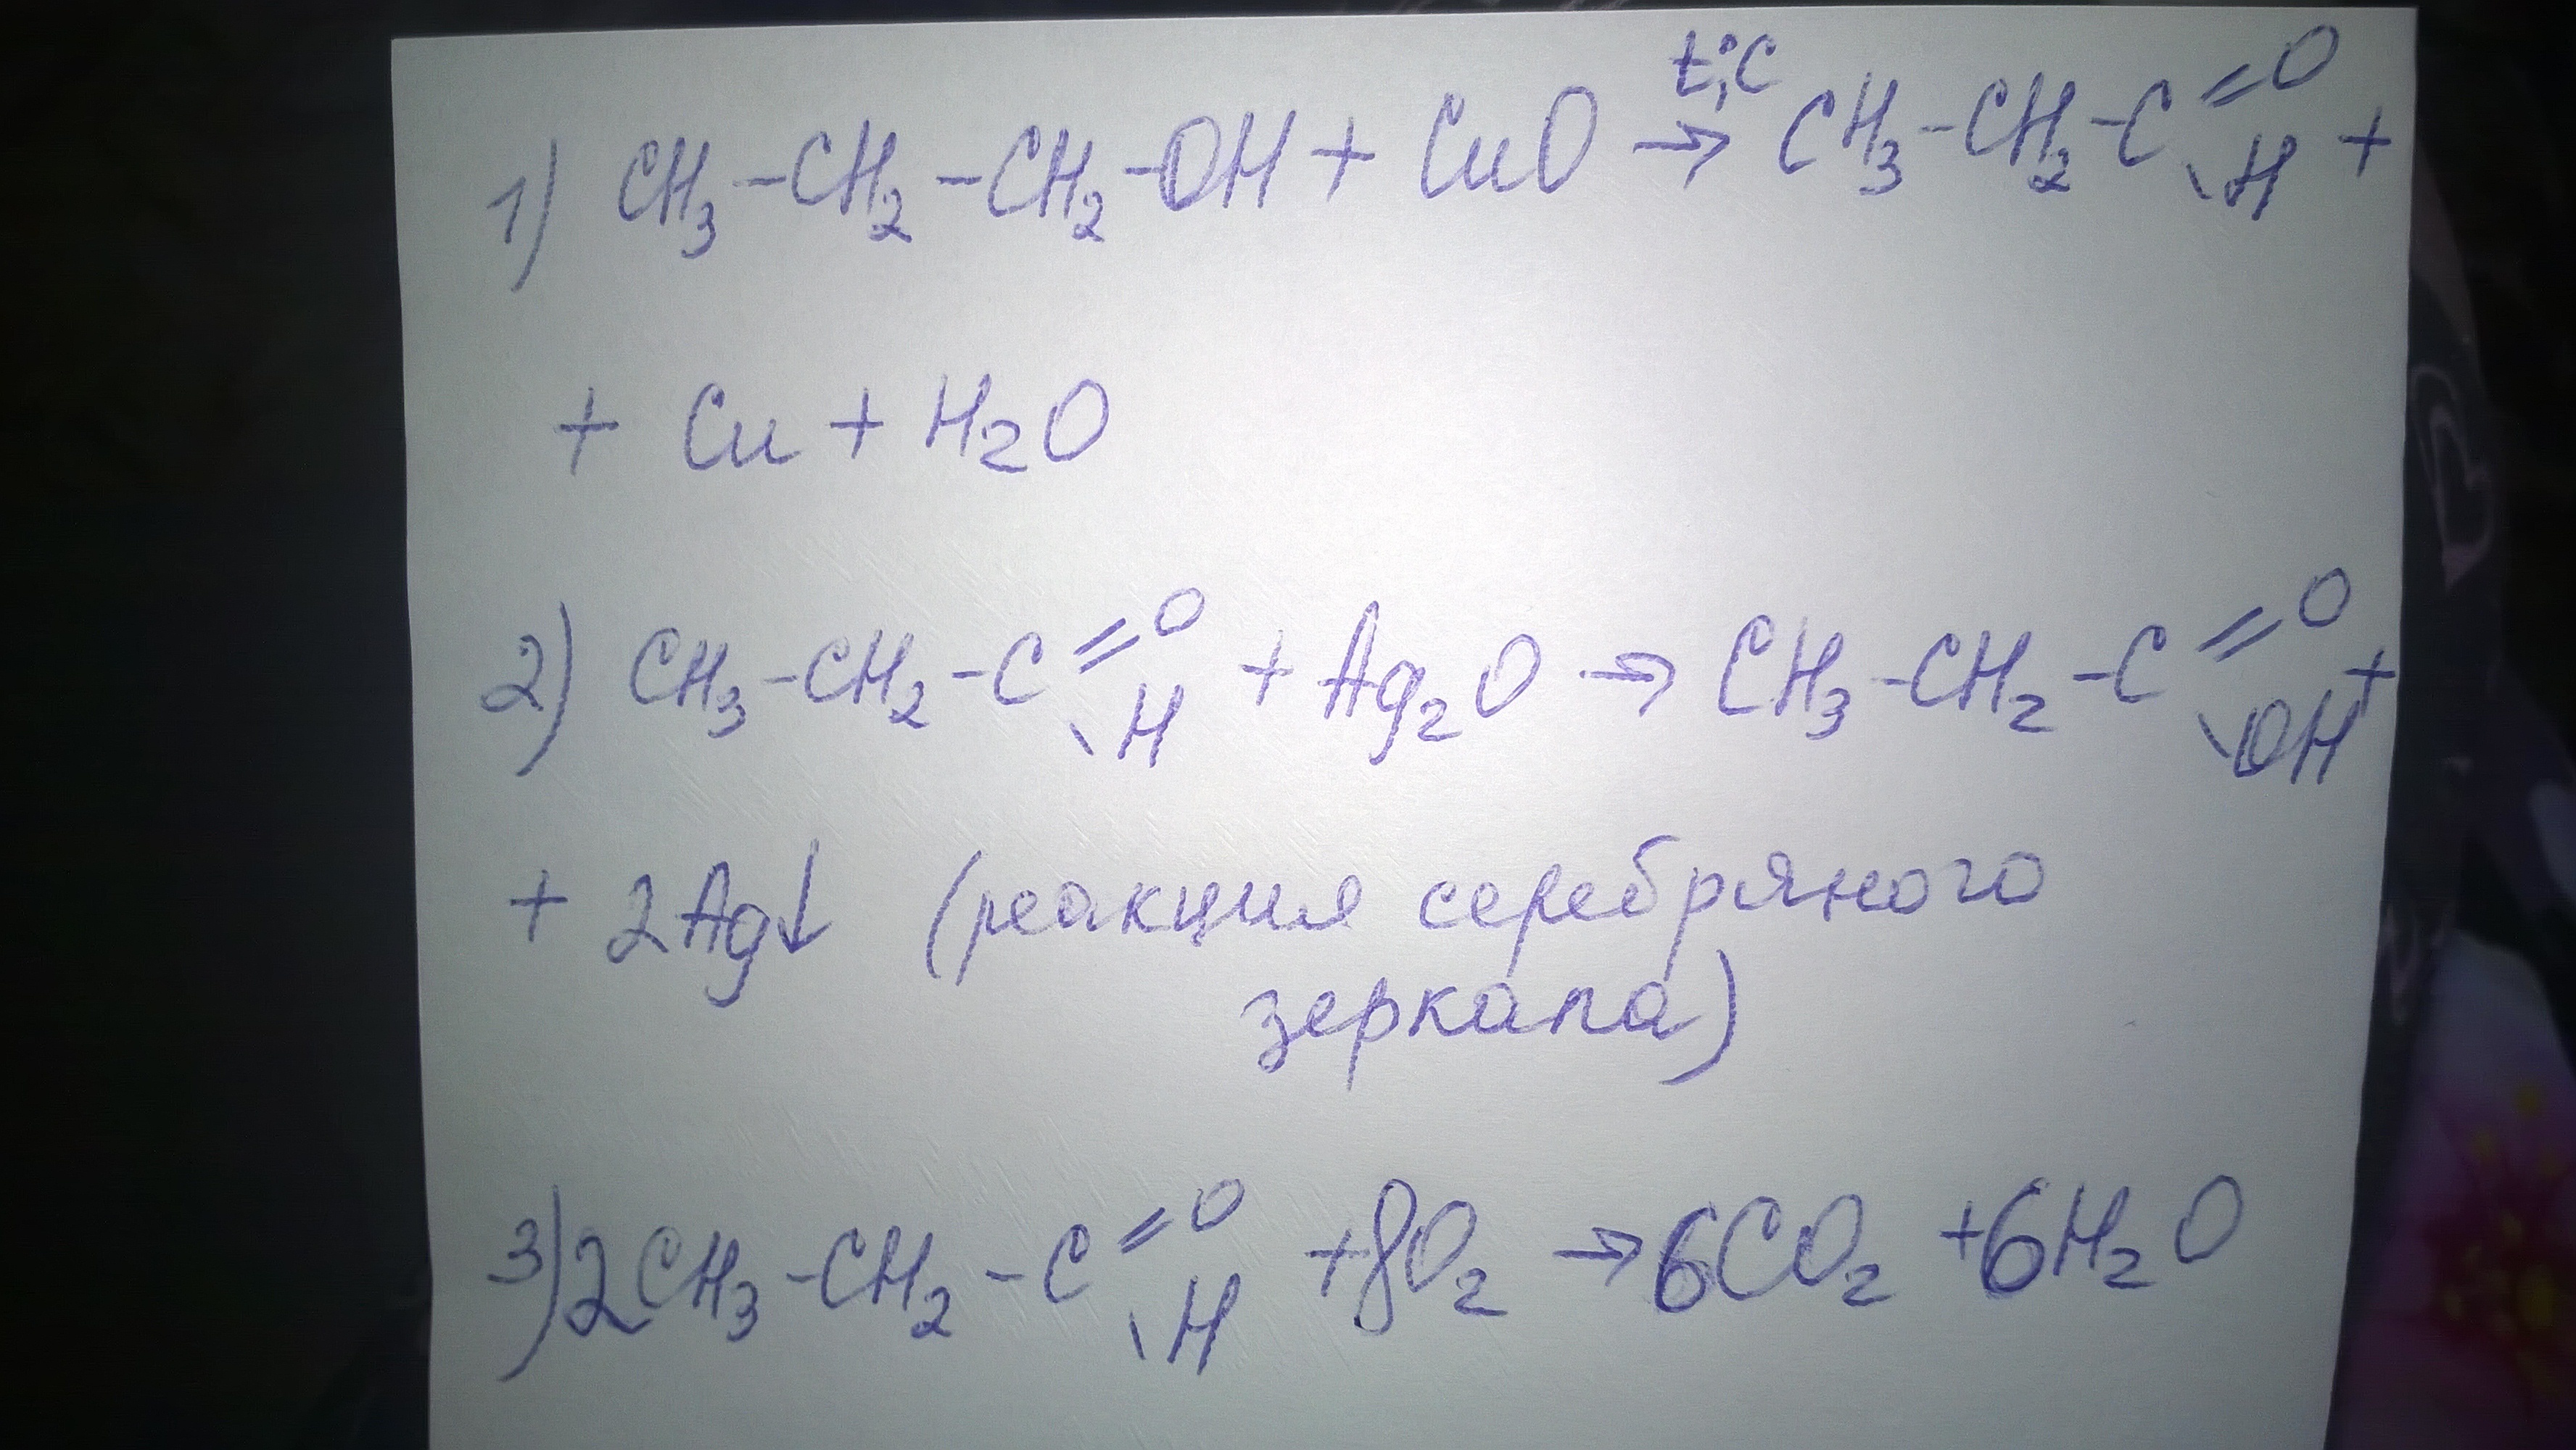 1) CH₃-CH₂-CH₂-OH + CuO →(t,°C) CH₃-CH₂-C(=O)(-H) +
+ Cu + H₂O
2) CH₃-CH₂-C(=O)(-H) + Ag₂O → CH₃-CH₂-C(=O)(-OH) +
+ 2Ag↓ (реакция серебряного
зеркала)
3) 2CH₃-CH₂-C(=O)(-H) + 8O₂ → 6CO₂ + 6H₂O